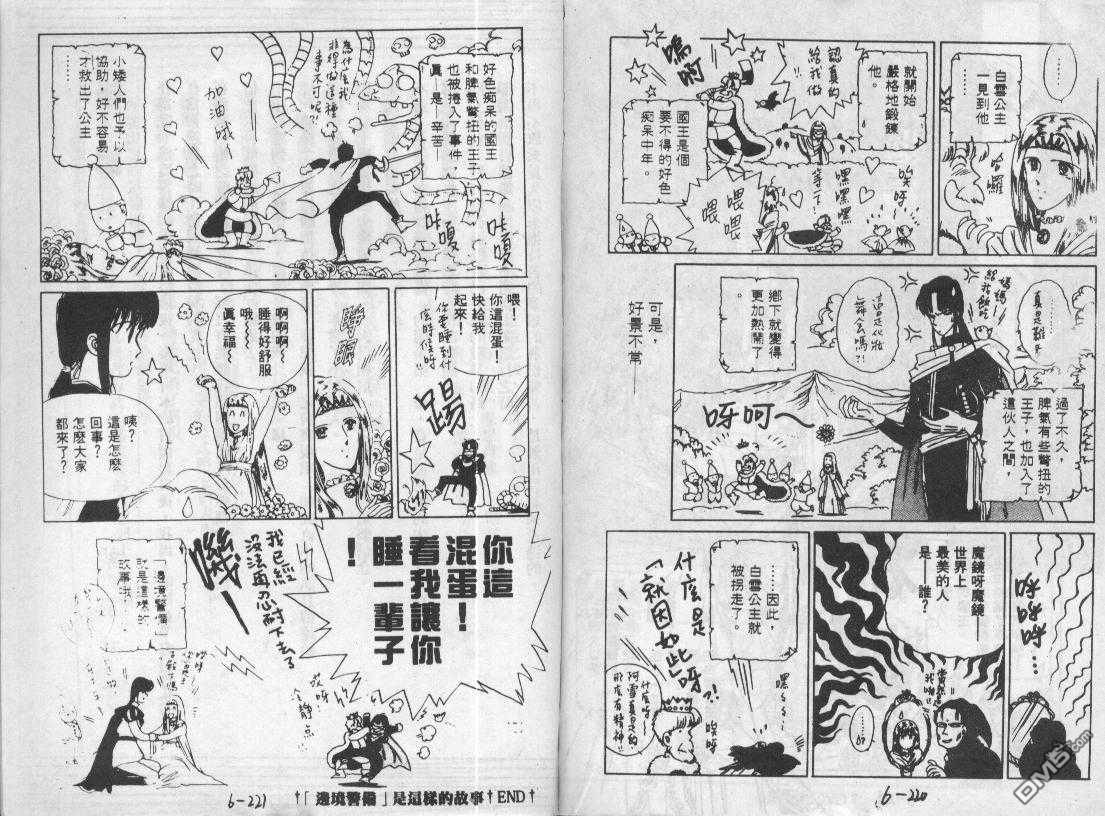 ……
白雪公主
一見到他
哈囉
就開始
嚴格地鍛鍊
他。
認真的
給我做
嗚啊
國王是個
要不得的好色
痴呆中年。
唉呀
嘿嘿嘿
等一下
喂喂喂
真是難
媽媽！
給我飯吃
這是化妝
舞会嗎?!
過了不久，
脾氣有些彆扭的
王子，也加入了
這伙人之間，
鄉下就變得
更加熱鬧了
。
呀呵～
可是，
好景不常—
呼呼呼…
魔鏡呀魔鏡—
世界上
最美的人
是—誰？
當然是
我啦!!
……
……因此，
白雪公主就
被拐走了。
嘿～
什麼是
「就因如此呀?!
唉呀
什麼呀～
阿雪真是的
那麼有精神!!
6-220
好色痴呆的國王
和脾氣彆扭的王子
也被捲入了事件，
真—是—辛苦—
為什麼我
非得做這種
事不可呢?!
加油哦—
小矮人們也予以
協助，好不容易
才救出了公主
……
哇嘎
哇嘎
喂！
你這混蛋！
快給我
起來！
你要睡到什
麼時候呀
踢
睜眼
啊啊啊～
睡得好舒服
哦～
真幸福～
咦？
這是怎麼
回事？
怎麼大家
都來了？
你這
混蛋！
看我讓你
睡一輩子
！
我已經
沒法再忍耐下去了
嘰—
哎呀
冷靜点
「邊境警備」
就是這樣的
故事哦。
†「邊境警備」是這樣的故事†END†
6-221
DM5.com